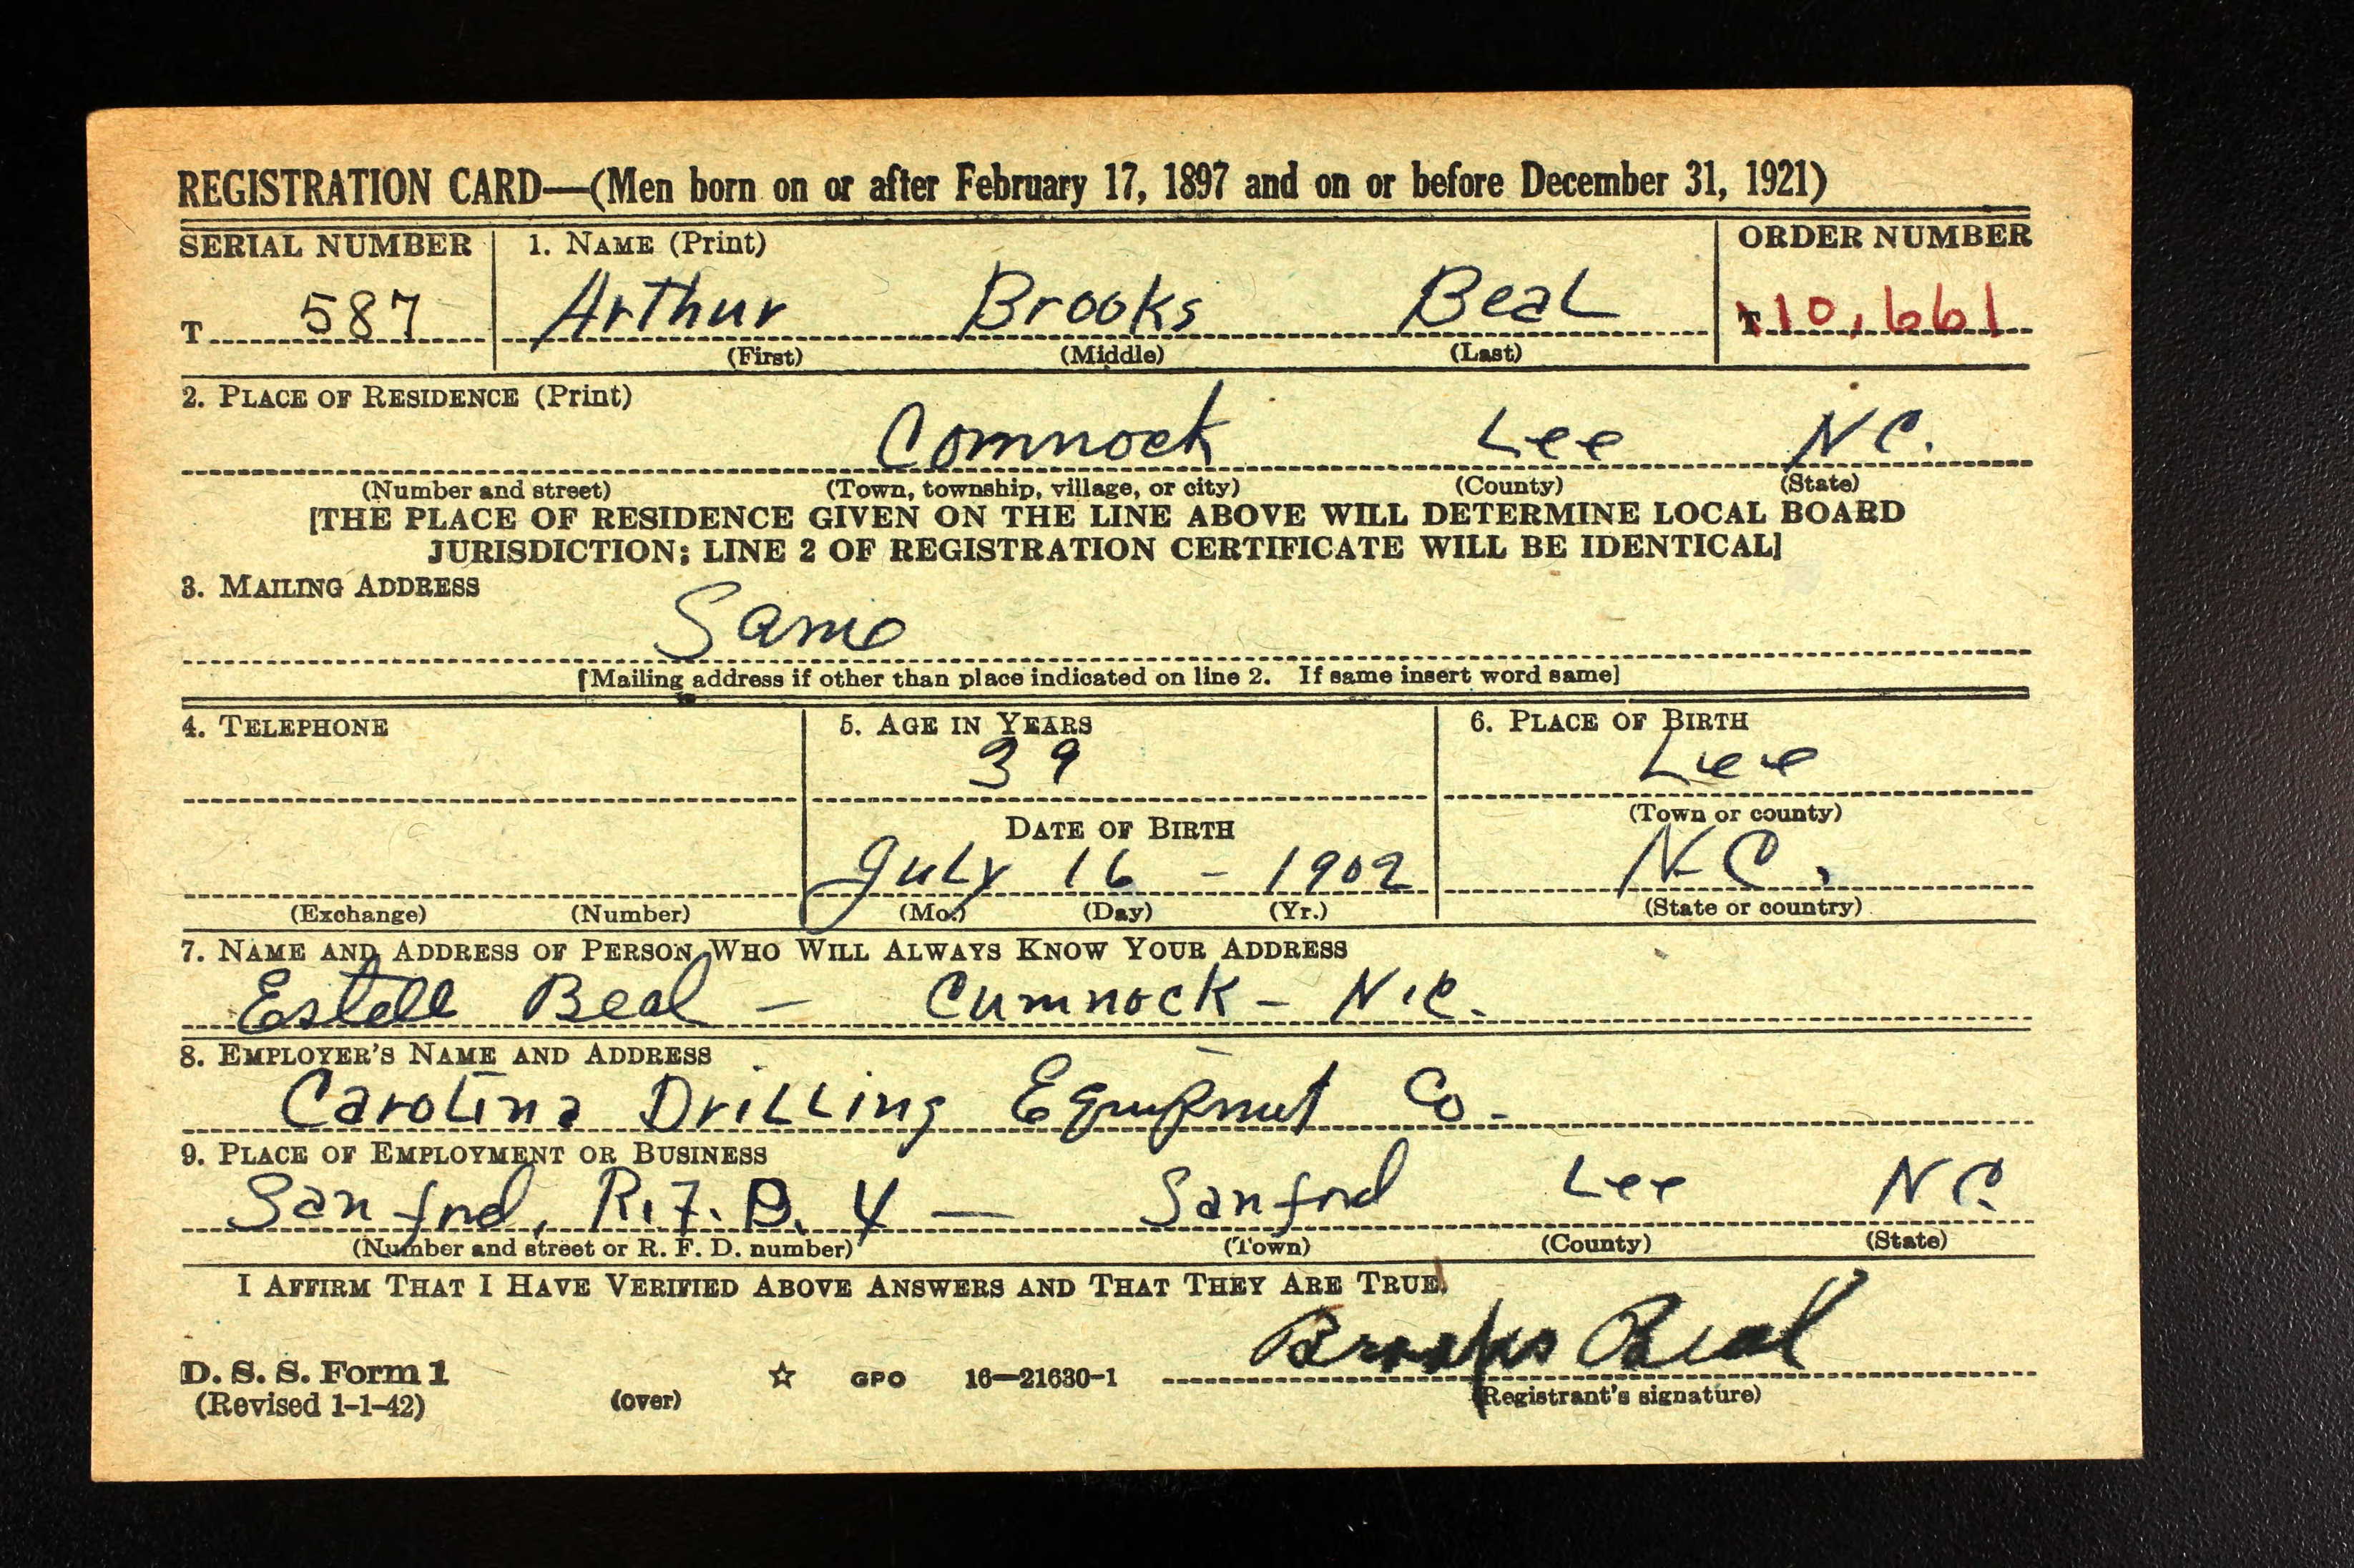 REGISTRATION CARD—(Men born on or after February 17, 1897 and on or before December 31, 1921)
SERIAL NUMBER 1. NAME (Print) ORDER NUMBER
T 587 Arthur Brooks Beal T 10,661
(First) (Middle) (Last)
2. PLACE OF RESIDENCE (Print)
Comnock Lee N C.
(Number and street) (Town, township, village, or city) (County) (State)
[THE PLACE OF RESIDENCE GIVEN ON THE LINE ABOVE WILL DETERMINE LOCAL BOARD
JURISDICTION; LINE 2 OF REGISTRATION CERTIFICATE WILL BE IDENTICAL]
3. MAILING ADDRESS
Same
[Mailing address if other than place indicated on line 2. If same insert word same]
4. TELEPHONE 5. AGE IN YEARS 6. PLACE OF BIRTH
39 Lee
(Town or county)
DATE OF BIRTH
July 16 - 1902 N.C.
(Exchange) (Number) (Mo.) (Day) (Yr.) (State or country)
7. NAME AND ADDRESS OF PERSON WHO WILL ALWAYS KNOW YOUR ADDRESS
Estell Beal - Cumnock - N.C.
8. EMPLOYER'S NAME AND ADDRESS
Carolina Drilling Equipment Co.
9. PLACE OF EMPLOYMENT OR BUSINESS
Sanford, R.F.D. 4 — Sanford Lee N C.
(Number and street or R. F. D. number) (Town) (County) (State)
I AFFIRM THAT I HAVE VERIFIED ABOVE ANSWERS AND THAT THEY ARE TRUE.
Brooks Beal
D. S. S. Form 1
(Revised 1-1-42) (over) ☆ GPO 16—21630-1 (Registrant's signature)